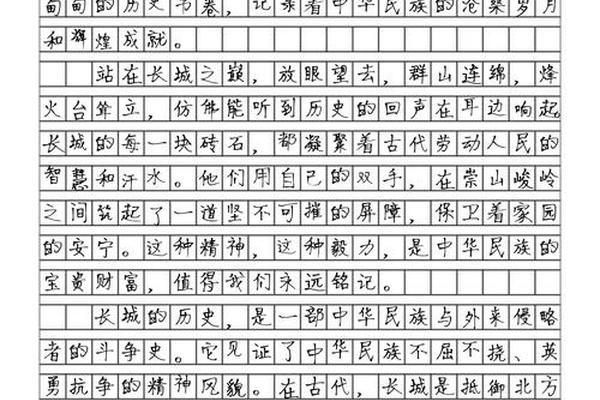 甸甸的历史书卷，记录着中华民族的沧桑岁月
和辉煌成就。
站在长城之巅，放眼望去，群山连绵，烽
火台耸立，仿佛能听到历史的回声在耳边响起。
长城的每一块砖石，都凝聚着古代劳动人民的
智慧和汗水。他们用自己的双手，在崇山峻岭
之间筑起了一道坚不可摧的屏障，保卫着家园
的安宁。这种精神，这种毅力，是中华民族的
宝贵财富，值得我们永远铭记。
长城的历史，是一部中华民族与外来侵略
者的斗争史。它见证了中华民族不屈不挠、英
勇抗争的精神风貌。在古代，长城是抵御北方